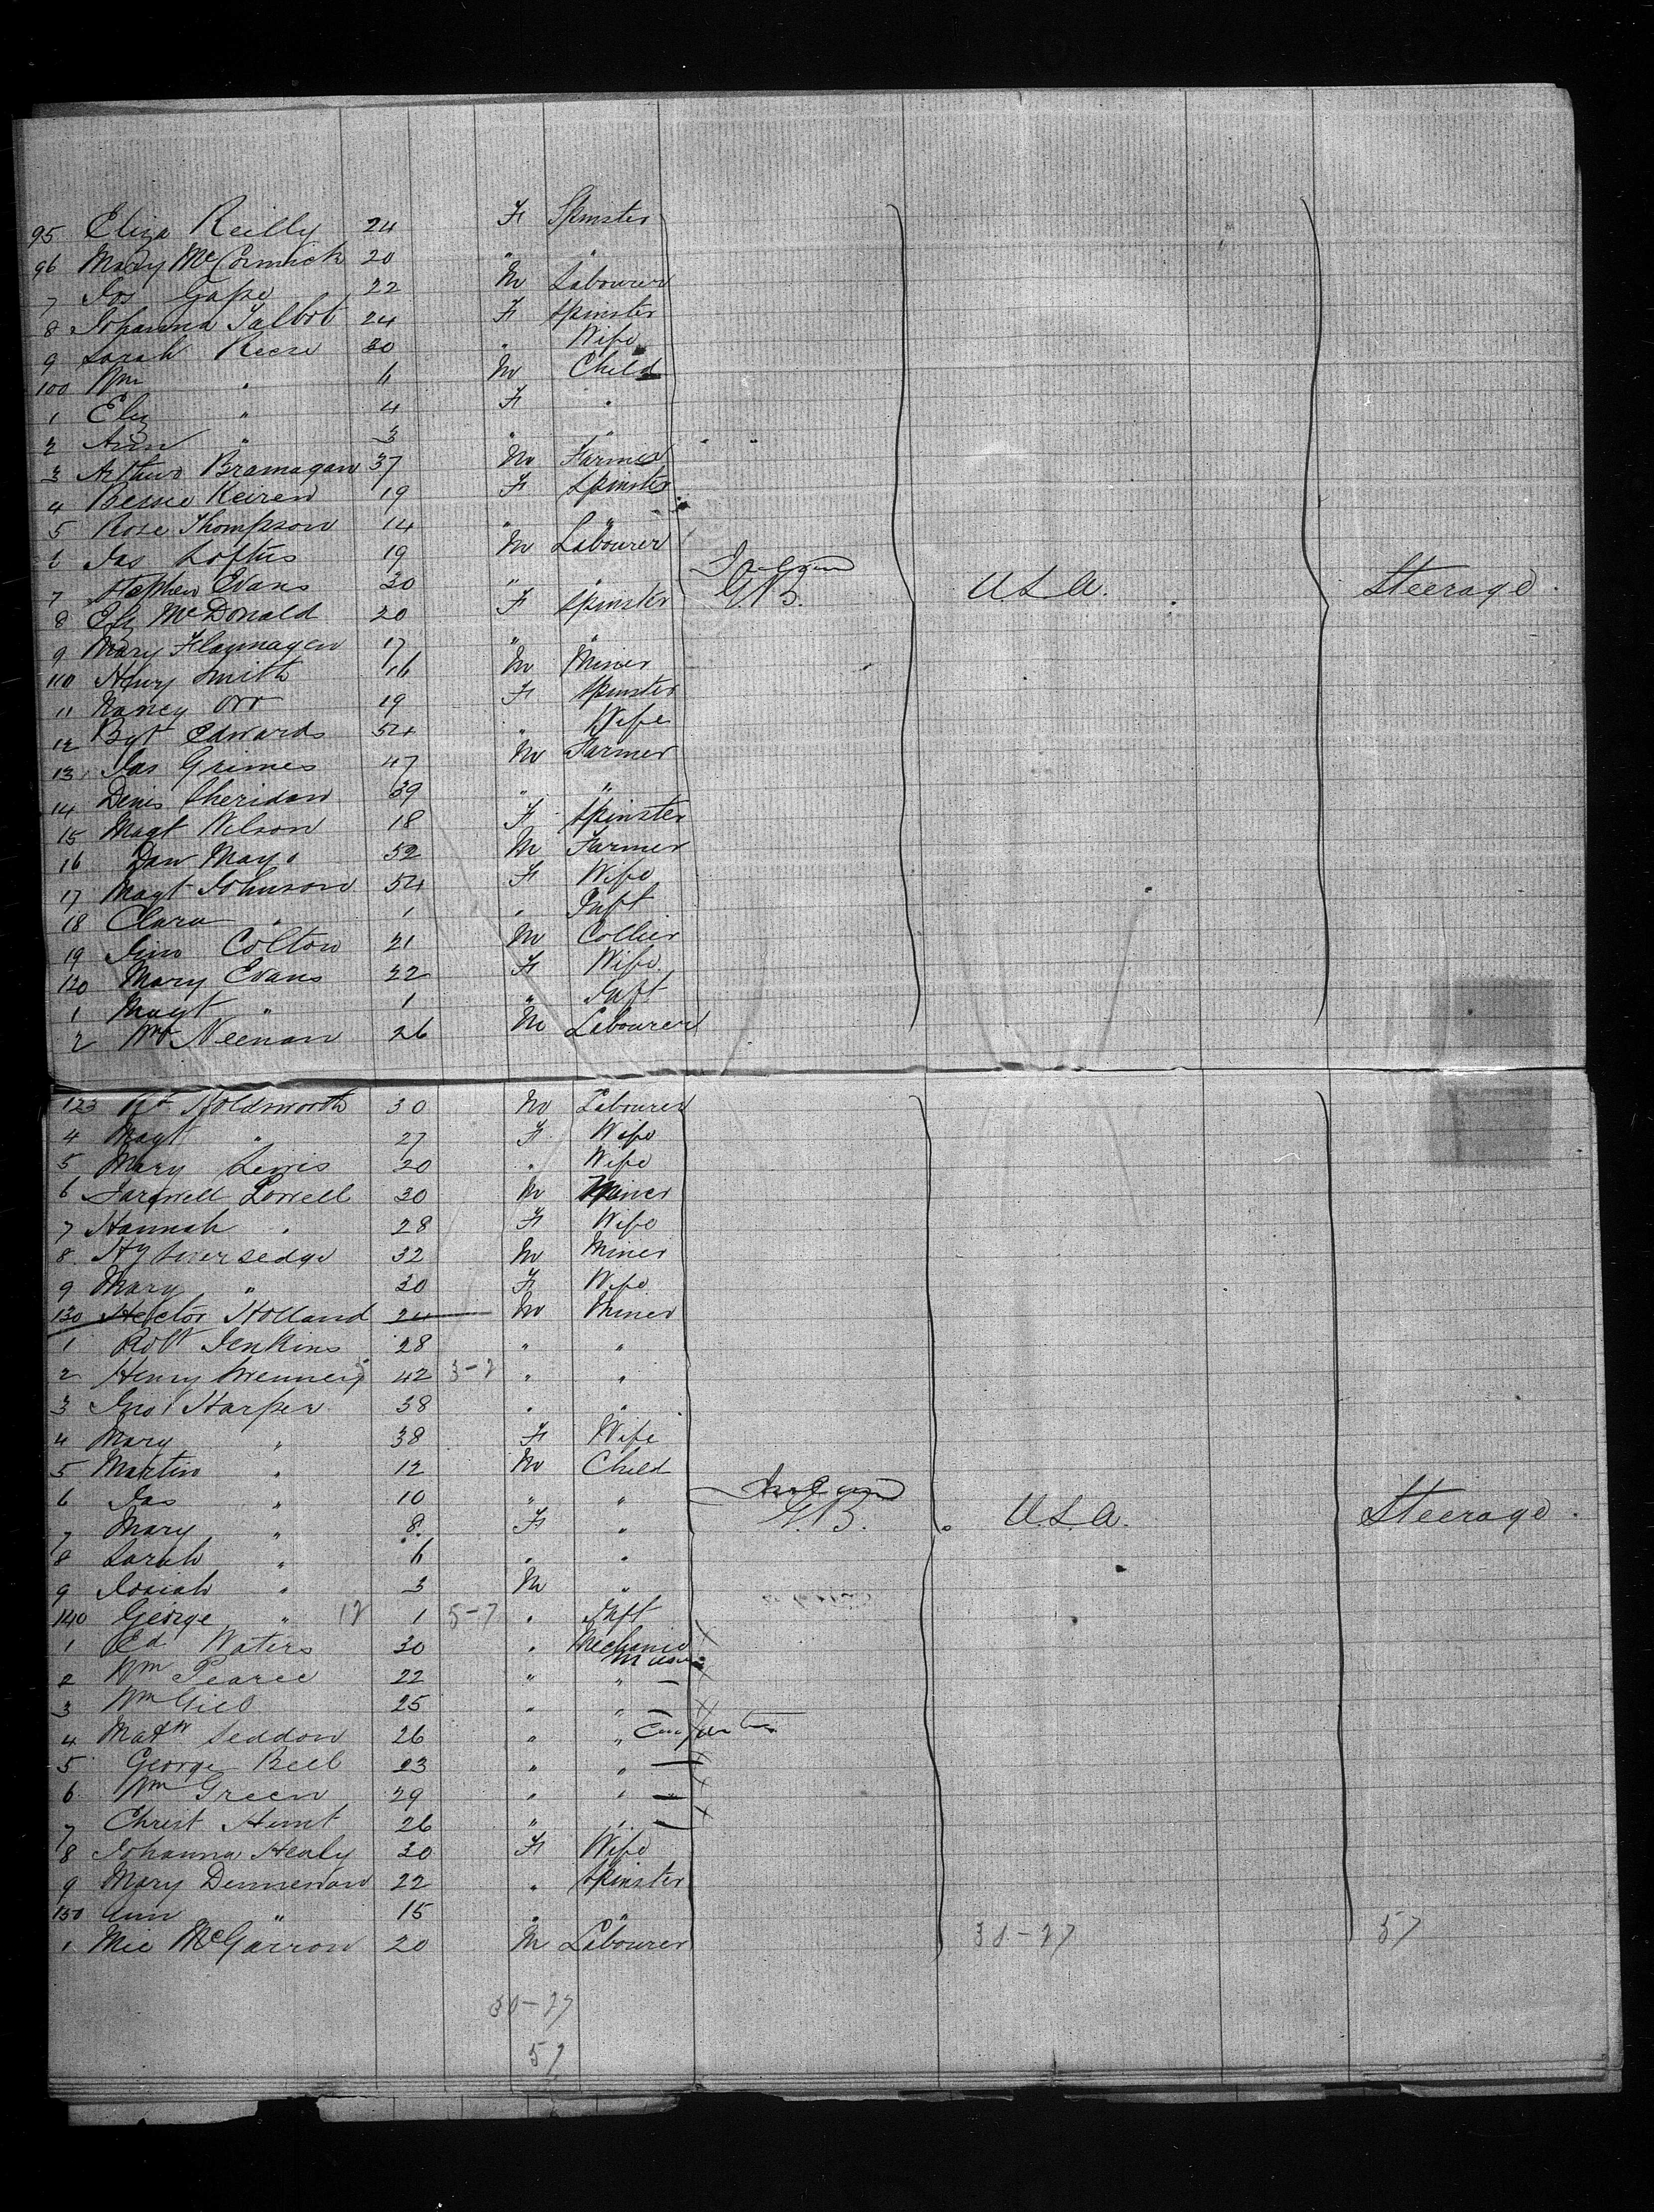 95 Eliza Reilly 24 F Spinster
96 Mary McCormick 20 " "
7 Jos Gape 22 M Labourer
8 Johanna Talbot 24 F Spinster
9 Sarah Reese 30 " Wife
100 Wm " 6 M Child
1 Eliz " 4 F "
2 Ann " 3 " "
3 Arthur Bramagan 37 M Farmer
4 Bessie Keiren 19 F Spinster
5 Rose Thompson 14 " "
6 Jas Loftus 19 M Labourer
7 Stephen Evans 30 " "
8 Eliz McDonald 20 F Spinster G.B. U.S.A. Steerage
9 Mary Flaymagen 17 " "
110 Henry Smith 16 M Miner
11 Nancy Orr 19 F Spinster
12 Bgt Edwards 54 " Wife
13 Jas Grimes 47 M Farmer
14 Denis Sheridan 39 " "
15 Magt Wilson 18 F Spinster
16 Dan Mayo 52 M Farmer
17 Magt Johnson 54 F Wife
18 Clara " 1 " Inft
19 Jim Colton 21 M Collier
120 Mary Evans 22 F Wife
1 Magt " 1 " Inft
2 Neenan 26 M Labourer
123 Rt Holdsworth 30 M Labourer
4 Magt " 27 F Wife
5 Mary Lewis 20 " Wife
6 Lowell 30 M Miner
7 Hannah " 28 F Wife
8 Hy Liversedge 32 M Miner
9 Mary " 30 F Wife
130 Hector Holland 24 M Miner
1 Robt Jenkins 28 " "
2 Henry 42 3-2 " "
3 Jno Harper 38 " "
4 Mary " 38 F Wife
5 Martin " 12 M Child
6 Jas " 10 " "
7 Mary " 8 F " G.B. U.S.A. Steerage
8 Sarah " 6 " "
9 Josiah " 3 M "
140 George " 12 1 5-7 " Inft
1 Ed Waters 30 " Mechanic
2 Wm Pearce 22 " "
3 Wm Gill 25 " "
4 Matw Seddon 26 " "
5 George Bell 23 " "
6 Wm Green 29 " "
7 Christ Hunt 26 " "
8 Johanna Healy 30 F Wife
9 Mary Dennewan 22 " Spinster
150 Ann " 15 " "
1 Mic McGarron 20 M Labourer 30-27 57
30-27
57